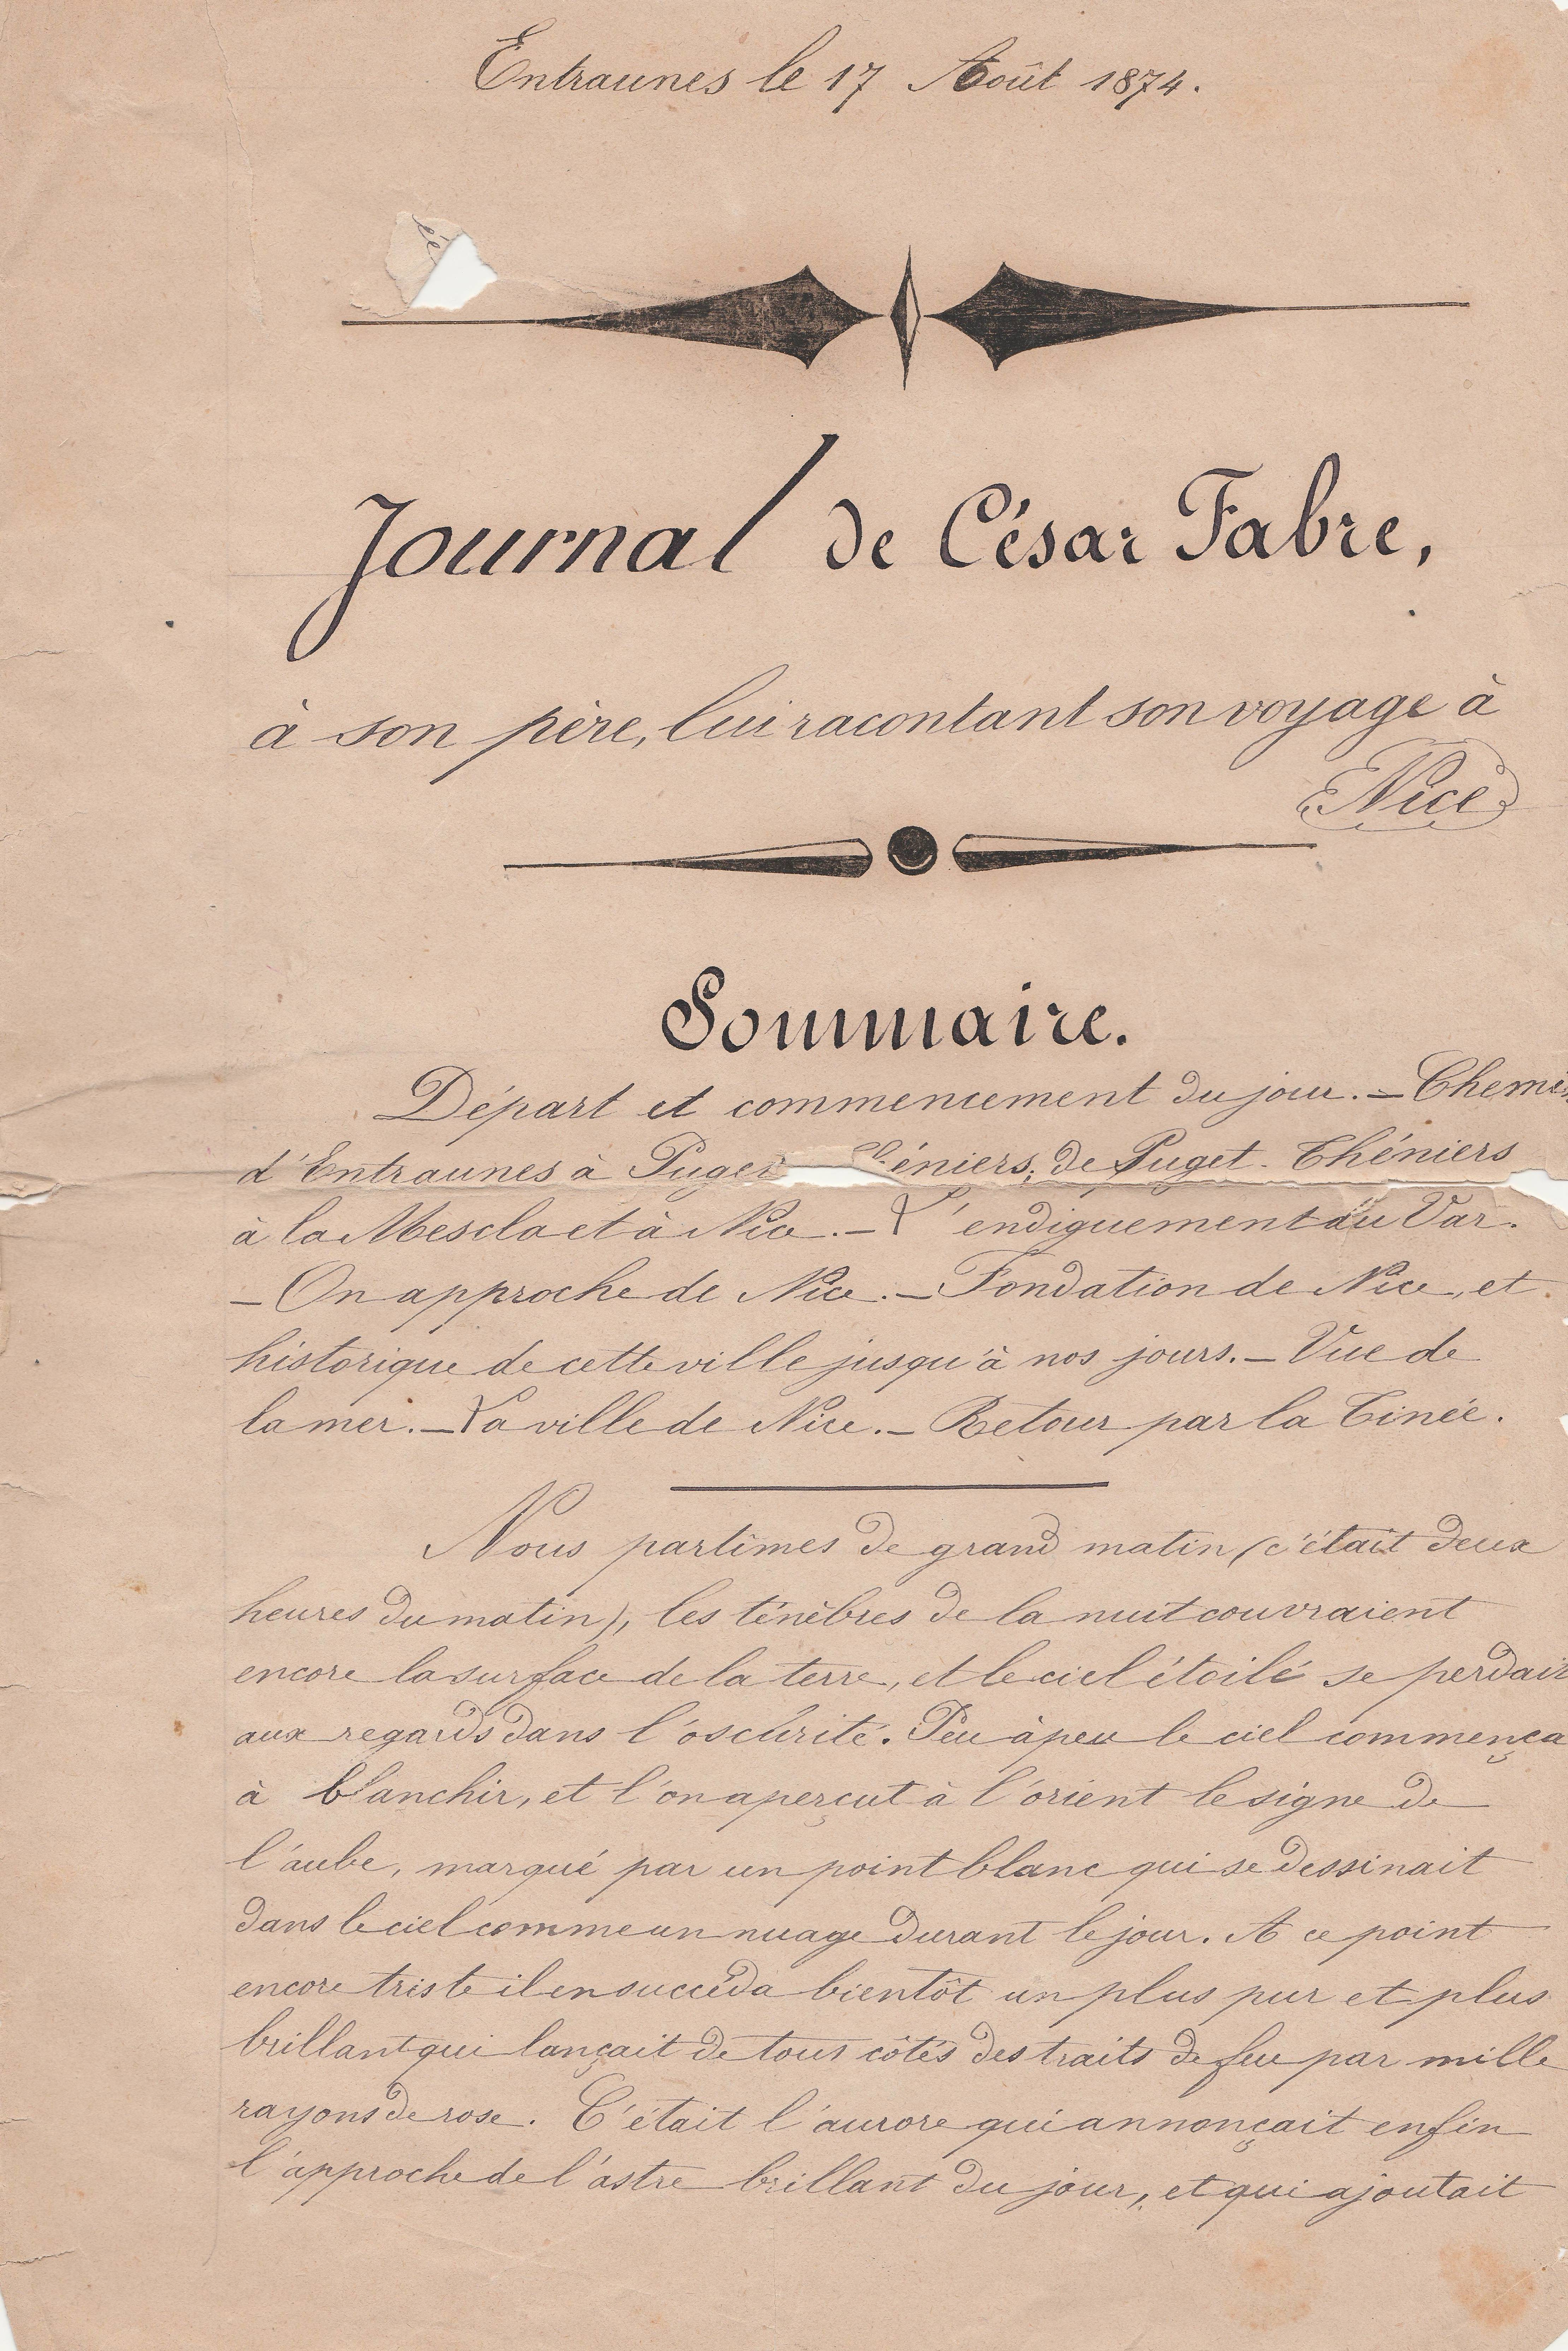 Entraunes le 17 Août 1874.
Journal de César Fabre,
à son père, lui racontant son voyage à
Nice
Sommaire.
Départ et commencement du jour. — Chemin
d'Entraunes à Puget Théniers; de Puget-Théniers
à la Mescla et à Nice. — L'endiguement du Var.
— On approche de Nice. — Fondation de Nice, et
historique de cette ville jusqu'à nos jours. — Vue de
la mer. — La ville de Nice. — Retour par la Tinée.
Nous partîmes de grand matin (c'était deux
heures du matin), les ténèbres de la nuit couvraient
encore la surface de la terre, et le ciel étoilé se perdait
aux regards dans l'oscurité. Peu à peu le ciel commença
à blanchir, et l'on aperçut à l'orient le signe de
l'aube, marqué par un point blanc qui se dessinait
dans le ciel comme un nuage durant le jour. A ce point
encore triste il en succéda bientôt un plus pur et plus
brillant qui lançait de tous côtés des traits de feu par mille
rayons de rose. C'était l'aurore qui annonçait enfin
l'approche de l'astre brillant du jour, et qui ajoutait